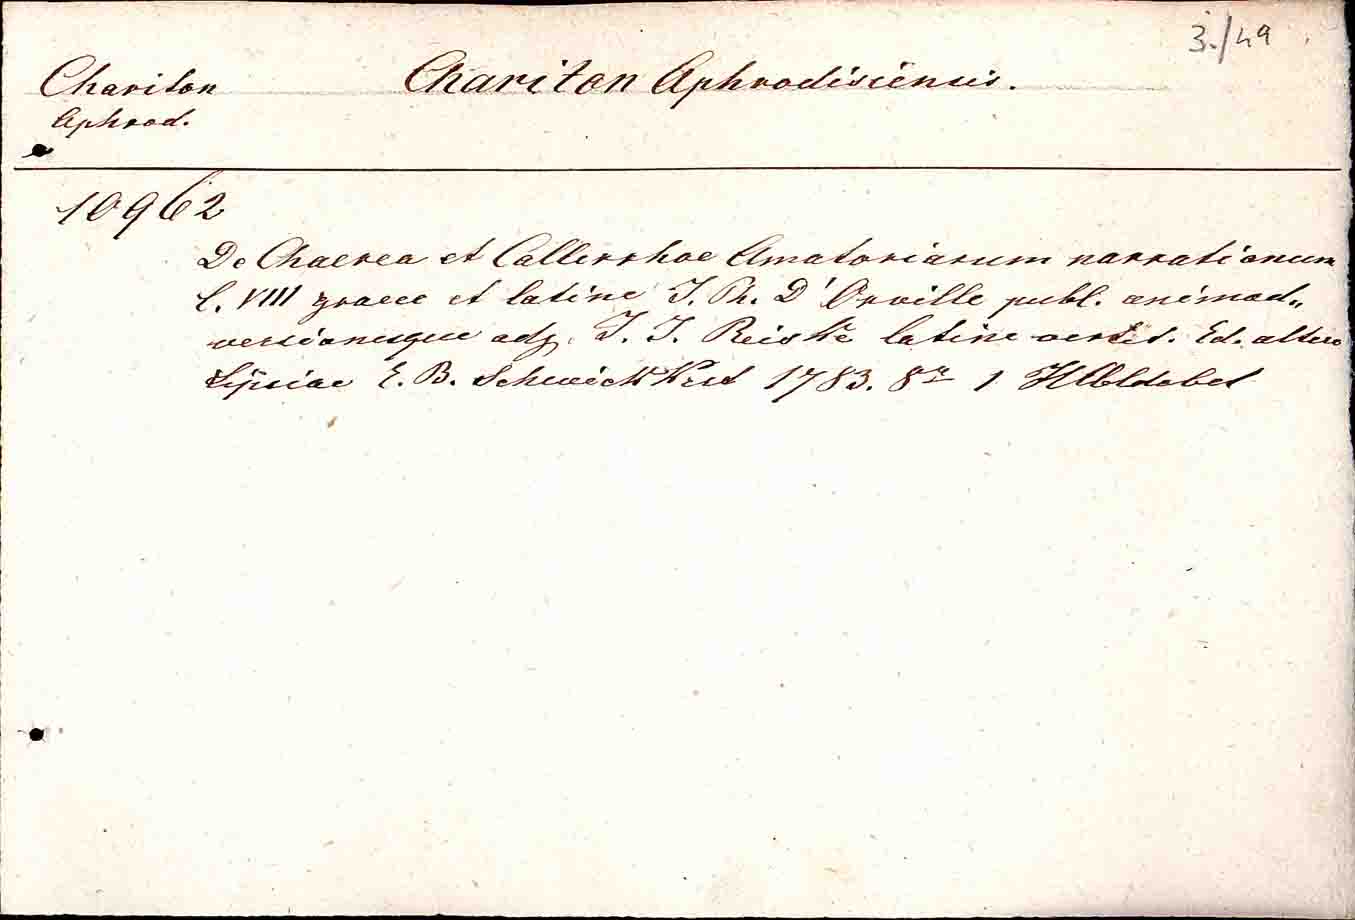 3./49
Chariton Chariton Aphrodisiensis.
Aphrod.
10962
De Chaerea et Callirrhoe Amatoriarum narrationum
l. VIII graece et latine J. Ph. D'Orville publ. animad„
versionesque adj. J. J. Reiske latine vertit. Ed. altera
Lipsiae E. B. Schwickert 1783. 8r 1